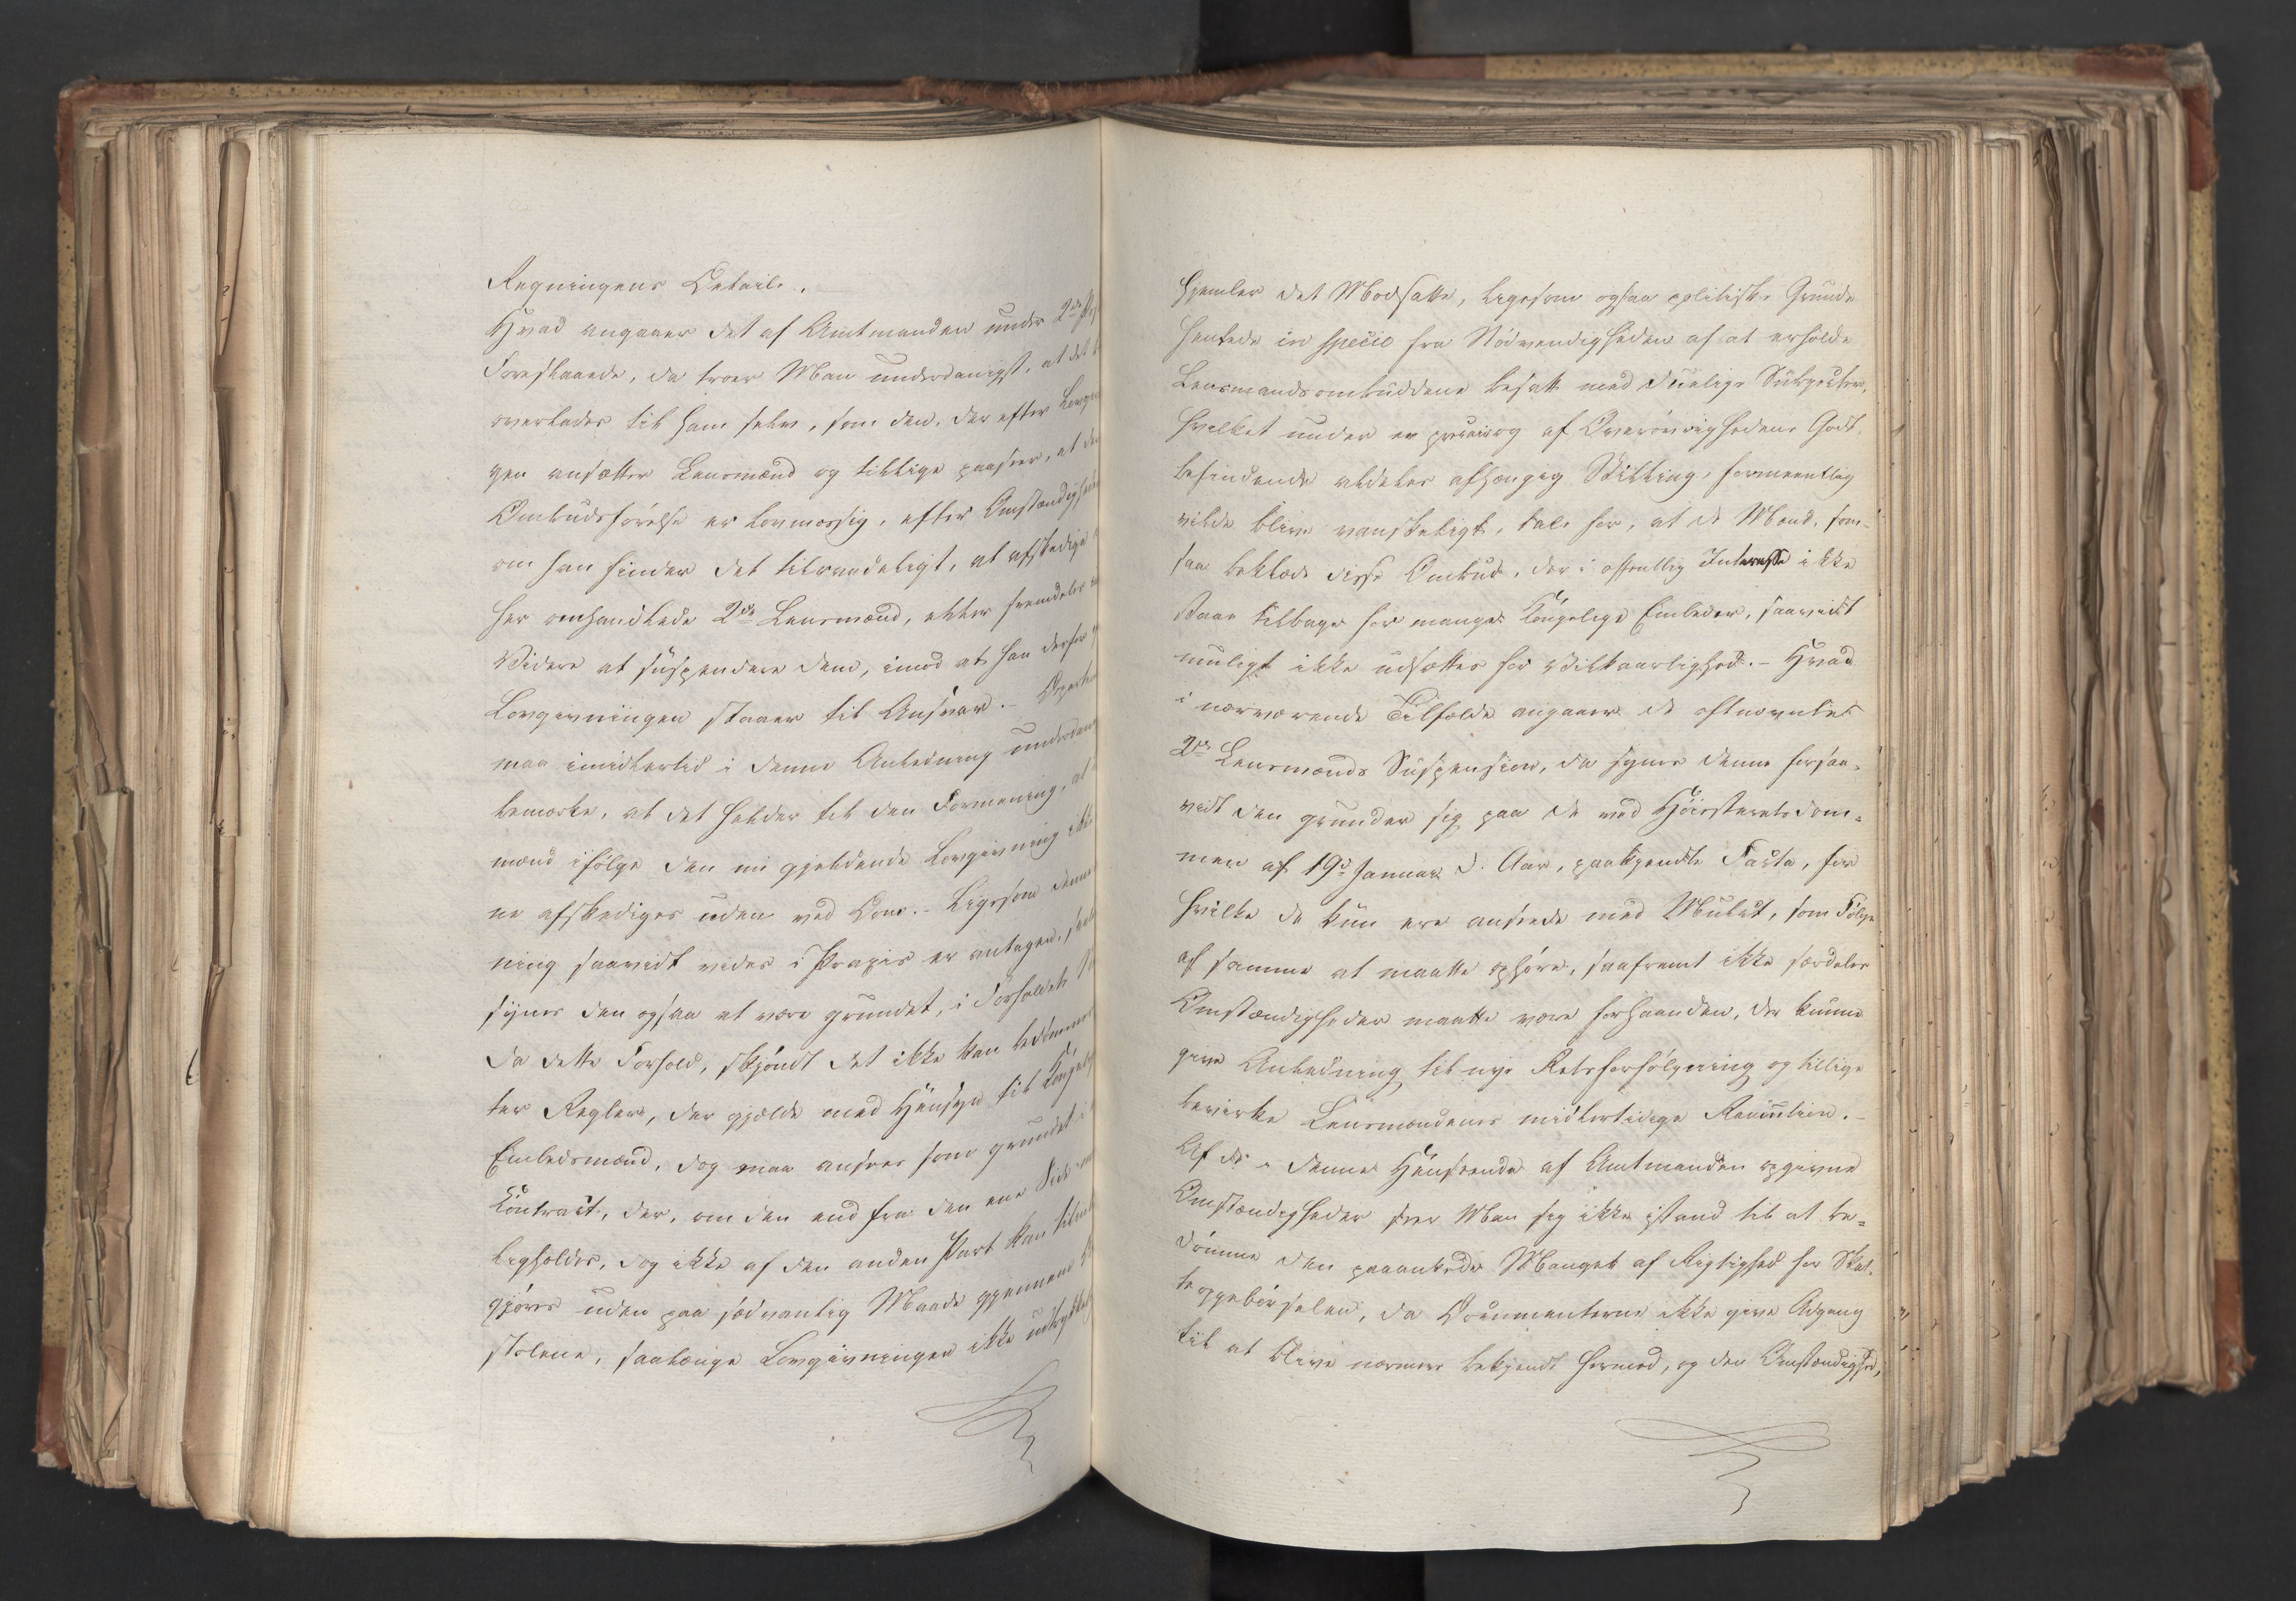 Regningens Detail.
Hvad angaaer det af Amtmanden under 2det
Foreslaaede, da troer Man underdanigst, at det
overlades til ham selv, som den, der efter Lovgiv
gen ansætter Lensmænd og tillige paaseer, at den
Ombudsførelse er lovmæssig, efter Omstændighed
om han finder det tilraadeligt, at afskedige
her omhandlede 2de Lensmænd, eller fremdeles
Videre at suspendere dem, imod at han derfor
Lovgivningen staaer til Ansvar. –
maa imidlertid i denne Anledning underdan
bemærke, at det helder til den Formening, at
mænd ifølge den nu gjeldende Lovgivning ikke
ne afskediges uden ved Dom. – Ligesom denne
ning saavidt vides i Praxis er antagen, saa
synes den ogsaa at være grundet, i Forholdets
da dette Forhold, skjøndt det ikke kan bedømmes
ter Regler, der gjelde med Hensyn til Kongelig
Embedsmænd, dog maa ansees som grundet i
Contract, der, om den end fra den ene Side
ligholdes, dog ikke af den anden Part kan tilintet
gjøres uden paa sædvanlig Maade gjennem
stolene, saalænge Lovgivningen ikke udtrykkelig
hjemler det Modsatte, ligesom ogsaa politiske Grunde
hentede in specie fra Nødvendigheden af at erholde
Lensmandsombuddene besatt med duelige Subjecter,
hvilket under en precair og af Overøvrighedens Godt-
befindende aldeles afhængig Stilling, formeentlig
vilde blive vanskeligt, tale for, at de Mænd, som
saa beklæde disse Ombud, der i offentlig Interesse ikke
staae tilbage for mange Kongelige Embeder, saavidt
muligt ikke udsættes for Vilkaarlighed. – Hvad
i nærværende Tilfælde angaaer de oftnævnte
2de Lensmænds Suspension, da synes denne forsaa-
vidt den grunder sig paa de ved Høiesteretsdom-
men af 19de Januar d. Aar, paakjendte Facta, for
hvilke de kun ere ansede med Mulct, som Følge
af samme at maatte ophøre, saafremt ikke særdeles
Omstændigheder maatte være forhaanden, der kunne
give Anledning til nye Retsforfølgning og tillige
bevirke Lensmændenes midlertidige Remotion. –
Af de i denne Henseende af Amtmanden opgivne
Omstændigheder seer Man sig ikke istand til at be-
dømme den paaankede Mangel af Rigtighed for Skat-
teoppebørselen, da Documenterne ikke give Adgang
til at blive nærmere bekjendt hermed, og den Omstændighed,